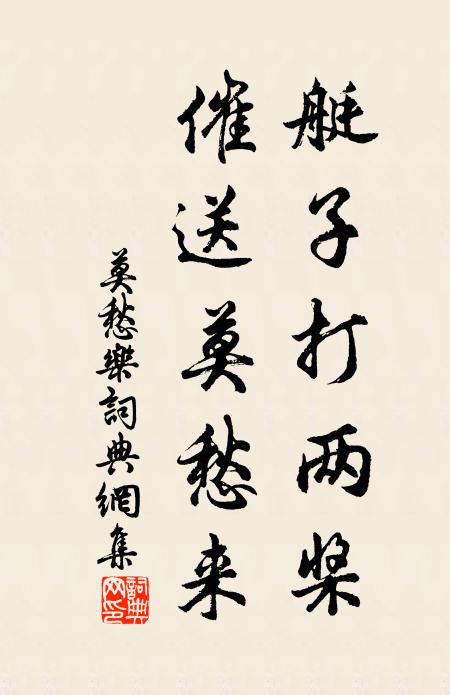 艇子打两桨
催送莫愁来
莫愁樂詞典網集
詞典网印